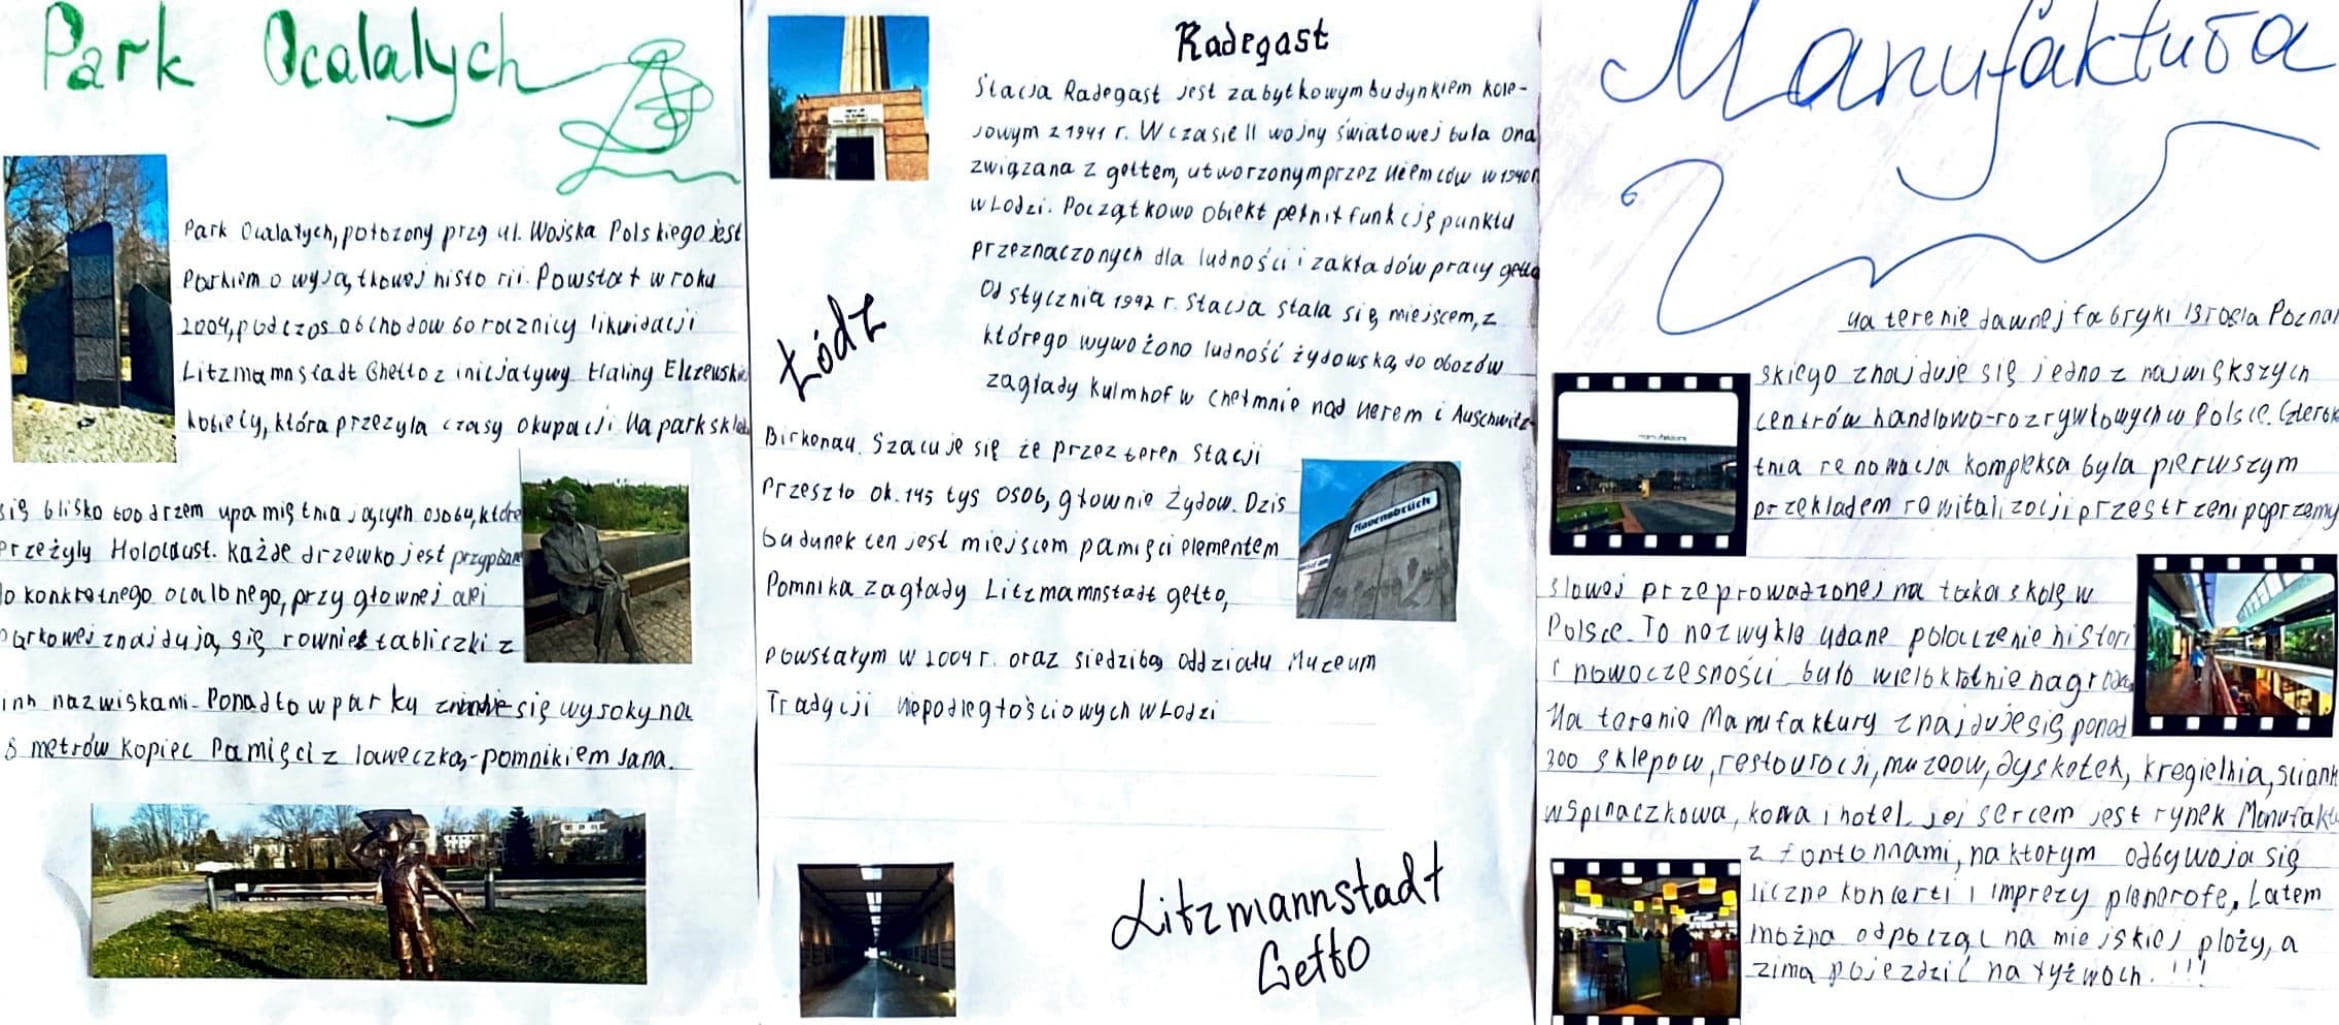 Park Ocalalych
Park Ocalatych, potozony przy ul. Wojska Polskiego jest
Parkiem o wyjątkowej historii. Powstat w roku
2004, podczos obchodow 60 rocznicy likwidacji
Litzmamnstadt Ghetto z inicjatywy Haliny Elczewskie
kobiety, która przezyla czasy okupacji Na park skład
się blisko 600 drzem upamiętniających osoby, które
przeżyly Holocaust. Każde drzewko jest przypisane
do konkretnego ocalbnego, przy głownej alei
parkowej znajdują się rowniet tabliczki z
inh nazwiskami. Ponadto w parku się wysoky na
8 metrów kopiec Pamięci z laweczką-pomnikiem Jana.
Radegast
Stacja Radegast jest zabytkowym budynkiem kole-
jowym z 1941 r. W czasie II wojny światowej bula ona
związana z gettem, utworzonym przez Niemców w 1940r
w Lodzi. Początkowo obiekt pełnił funkcję punktu
przeznaczonych dla ludności i zakładów pracy getta
Od stycznia 1942 r. Stacja stala się miejscem, z
którego wywożono ludność żydowską do obozów
zagłady Kulmhof w Chełmnie nad Nerem i Auschwitz-
Birkenau. Szacuje się że przez teren Stacji
Przeszło ok. 145 tys osob, głownie Żydow. Dzis
budunek ten jest miejscem pamięci elementem
Pomnika zagłady Litzmamnstadt getto,
powstałym w 2004 r. oraz siedzibą oddziału Muzeum
Tradycji Niepodległościowych w Lodzi
Łódź
Ravensbrück
Litzmannstadt
Getto
Manufaktura
Na terenie dawnej fabryki Israela Poznań
skiego znajduje się jedno z największych
centrów handlowo-rozrywkowych w Polsce. Czterok
tnia renowacja kompleksa byla pierwszym
przekladem rowitalizacji przestrzeni poprzemy
slowej przeprowadzonej na taka skolę w
Polsce. To nozwykle udane polaczenie histori
i nowoczesności bylo wielokrotnie nagrodza
Na toronio Manufaktury znajduje się ponad
300 sklepow, restouracji, muzeow, dyskotek, kregielnia, sciank
wspinaczkowa, kona i hotel. Jej sercem jest rynek Manufaktu
z fontonnami, na ktorym odbywoja się
liczne koncerti i imprezy plenerofe, Latem
można odpocząc na miejskiej ploży, a
zima pojezdzić na łyżwoch. !!!